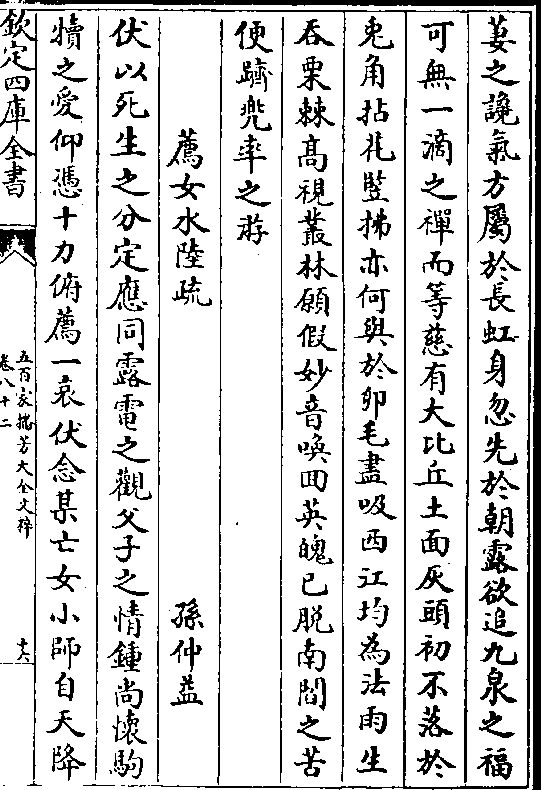 萋之讒氣方屬於長虹身忽先於朝露欲追九泉之福
可無一滴之禪而等慈有大比丘土面灰頭初不落於
兎角拈花豎拂亦何與於夘毛盡吸西江均為法雨生
吞栗棘髙視叢林願假妙音喚囬英魄已脱南閻之苦
便躋兜率之游
薦女水陸疏 孫仲益
伏以死生之分定應同露電之觀父子之情鍾尚懷駒
犢之愛仰憑十力俯薦一哀伏念某亡女小師自天降
欽定四庫全書
五百家播芳大全文粹
卷八十二
十六